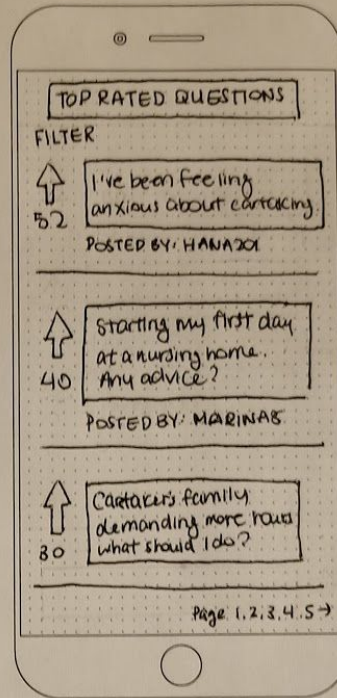 TOP RATED QUESTIONS
FILTER
52
I've been feeling
anxious about caretaking
POSTED BY: HANA201
40
Starting my first day
at a nursing home.
Any advice?
POSTED BY: MARINA8
30
Caretaker's family
demanding more hours
what should I do?
Page 1,2,3,4,5→